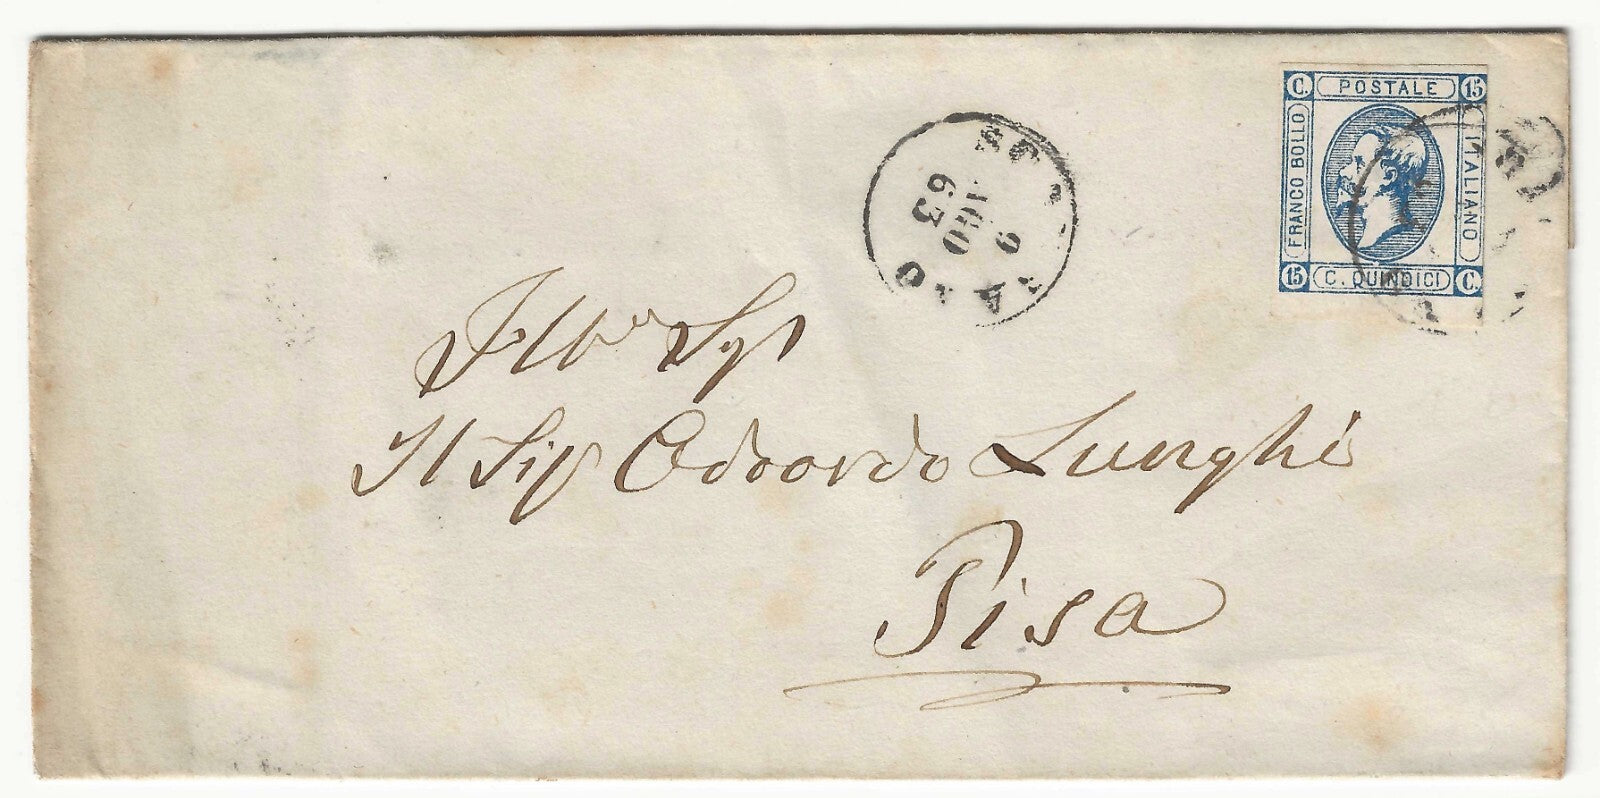 C. POSTALE 15
FRANCO BOLLO
ITALIANO
15 C. QUINDICI C.
9
AGO
63
Sigr
Il Sigr Odoardo Lunghi
Pisa